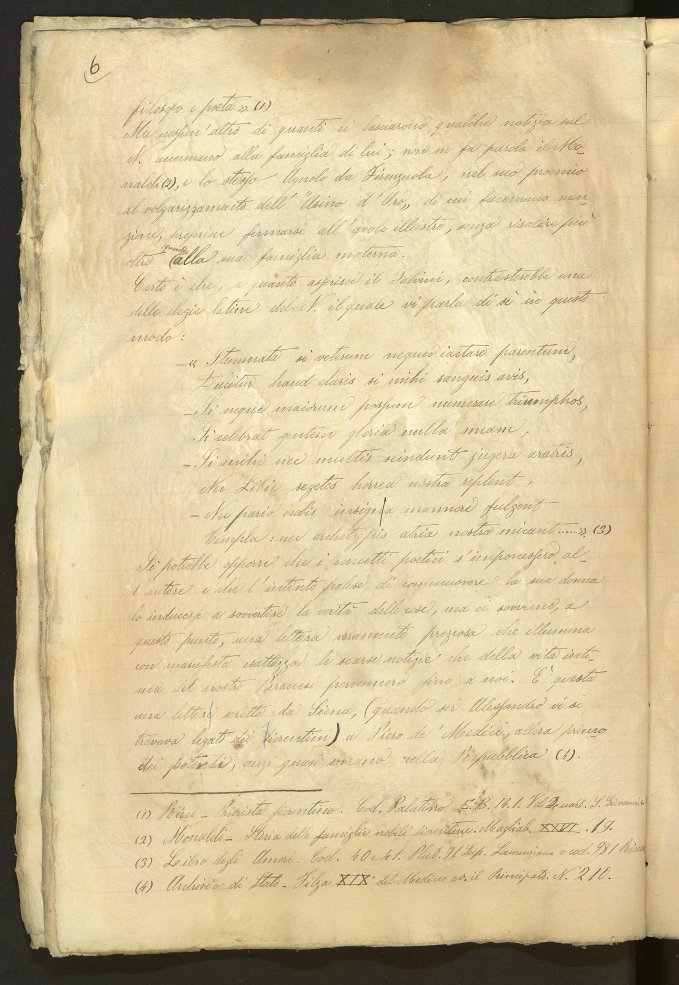 6
filosofo e poeta » (1)
Ma nessun' altro di quanti ci lasciarono qualche notizia sul
N. accennano alla famiglia di lui; non ne fa parola il Mo-
naldi (2), e lo stesso Agnolo da Firenzuola, nel suo proemio
al volgarizzamento dell' "Asino d' Oro", di cui facemmo men-
zione, preferisce fermarsi all' avolo illustre, senza risalire più
oltre quanto alla sua famiglia materna.
Certo è che, a quanto asserisce il Salvini, contrasterebbe una
delle elegie latine del N. il quale vi parla di se in questo
modo:
– « Stemmata si veterum nequeo iactare parentum,
Ducitur haud claris si mihi sanguis avis,
– Si neque maiorum possum numerare triumphos,
Si celebrat gentem gloria nulla meam.
– Si mihi nec multis scindunt jugera aratris,
Nec Libie segetes horrea nostra replent,
– Nec pario nobis insignia marmore fulgent
Templa: nec archetypis atria nostra micant ..... » (3)
Si potrebbe opporre che i concetti poetici s' imponessero al-
l' autore e che l' intento palese di commuovere la sua donna
lo inducesse a sovvertire la verità delle cose, ma ci sovviene, a
questo punto, una lettera veramente preziosa che illumina
con manifesta esattezza le scarse notizie che della vita inte-
rna del nostro Braccesi pervennero fino a noi. È questa
una lettera scritta da Siena, (quando ser Alessandro vi si
trovava legato dei fiorentini) a Piero de' Medici, allora primo
dei potenti, anzi quasi sovrano nella Repubblica (4).
(1) Ricci – Priorista fiorentino. Cod. Palatino E. B. 14. 1. Vol. 2 quart. S. Giovanni
(2) Monaldi – Storia delle famiglie nobili fiorentine. Magliab. XXVI. 17.
(3) Libro degli Amori. Cod. 40 e 41. Plut. 91 Sup. Laurenziana e cod. 981 Ricca
(4) Archivio di Stato – Filza XIX del Mediceo av. il Principato. N. 210.